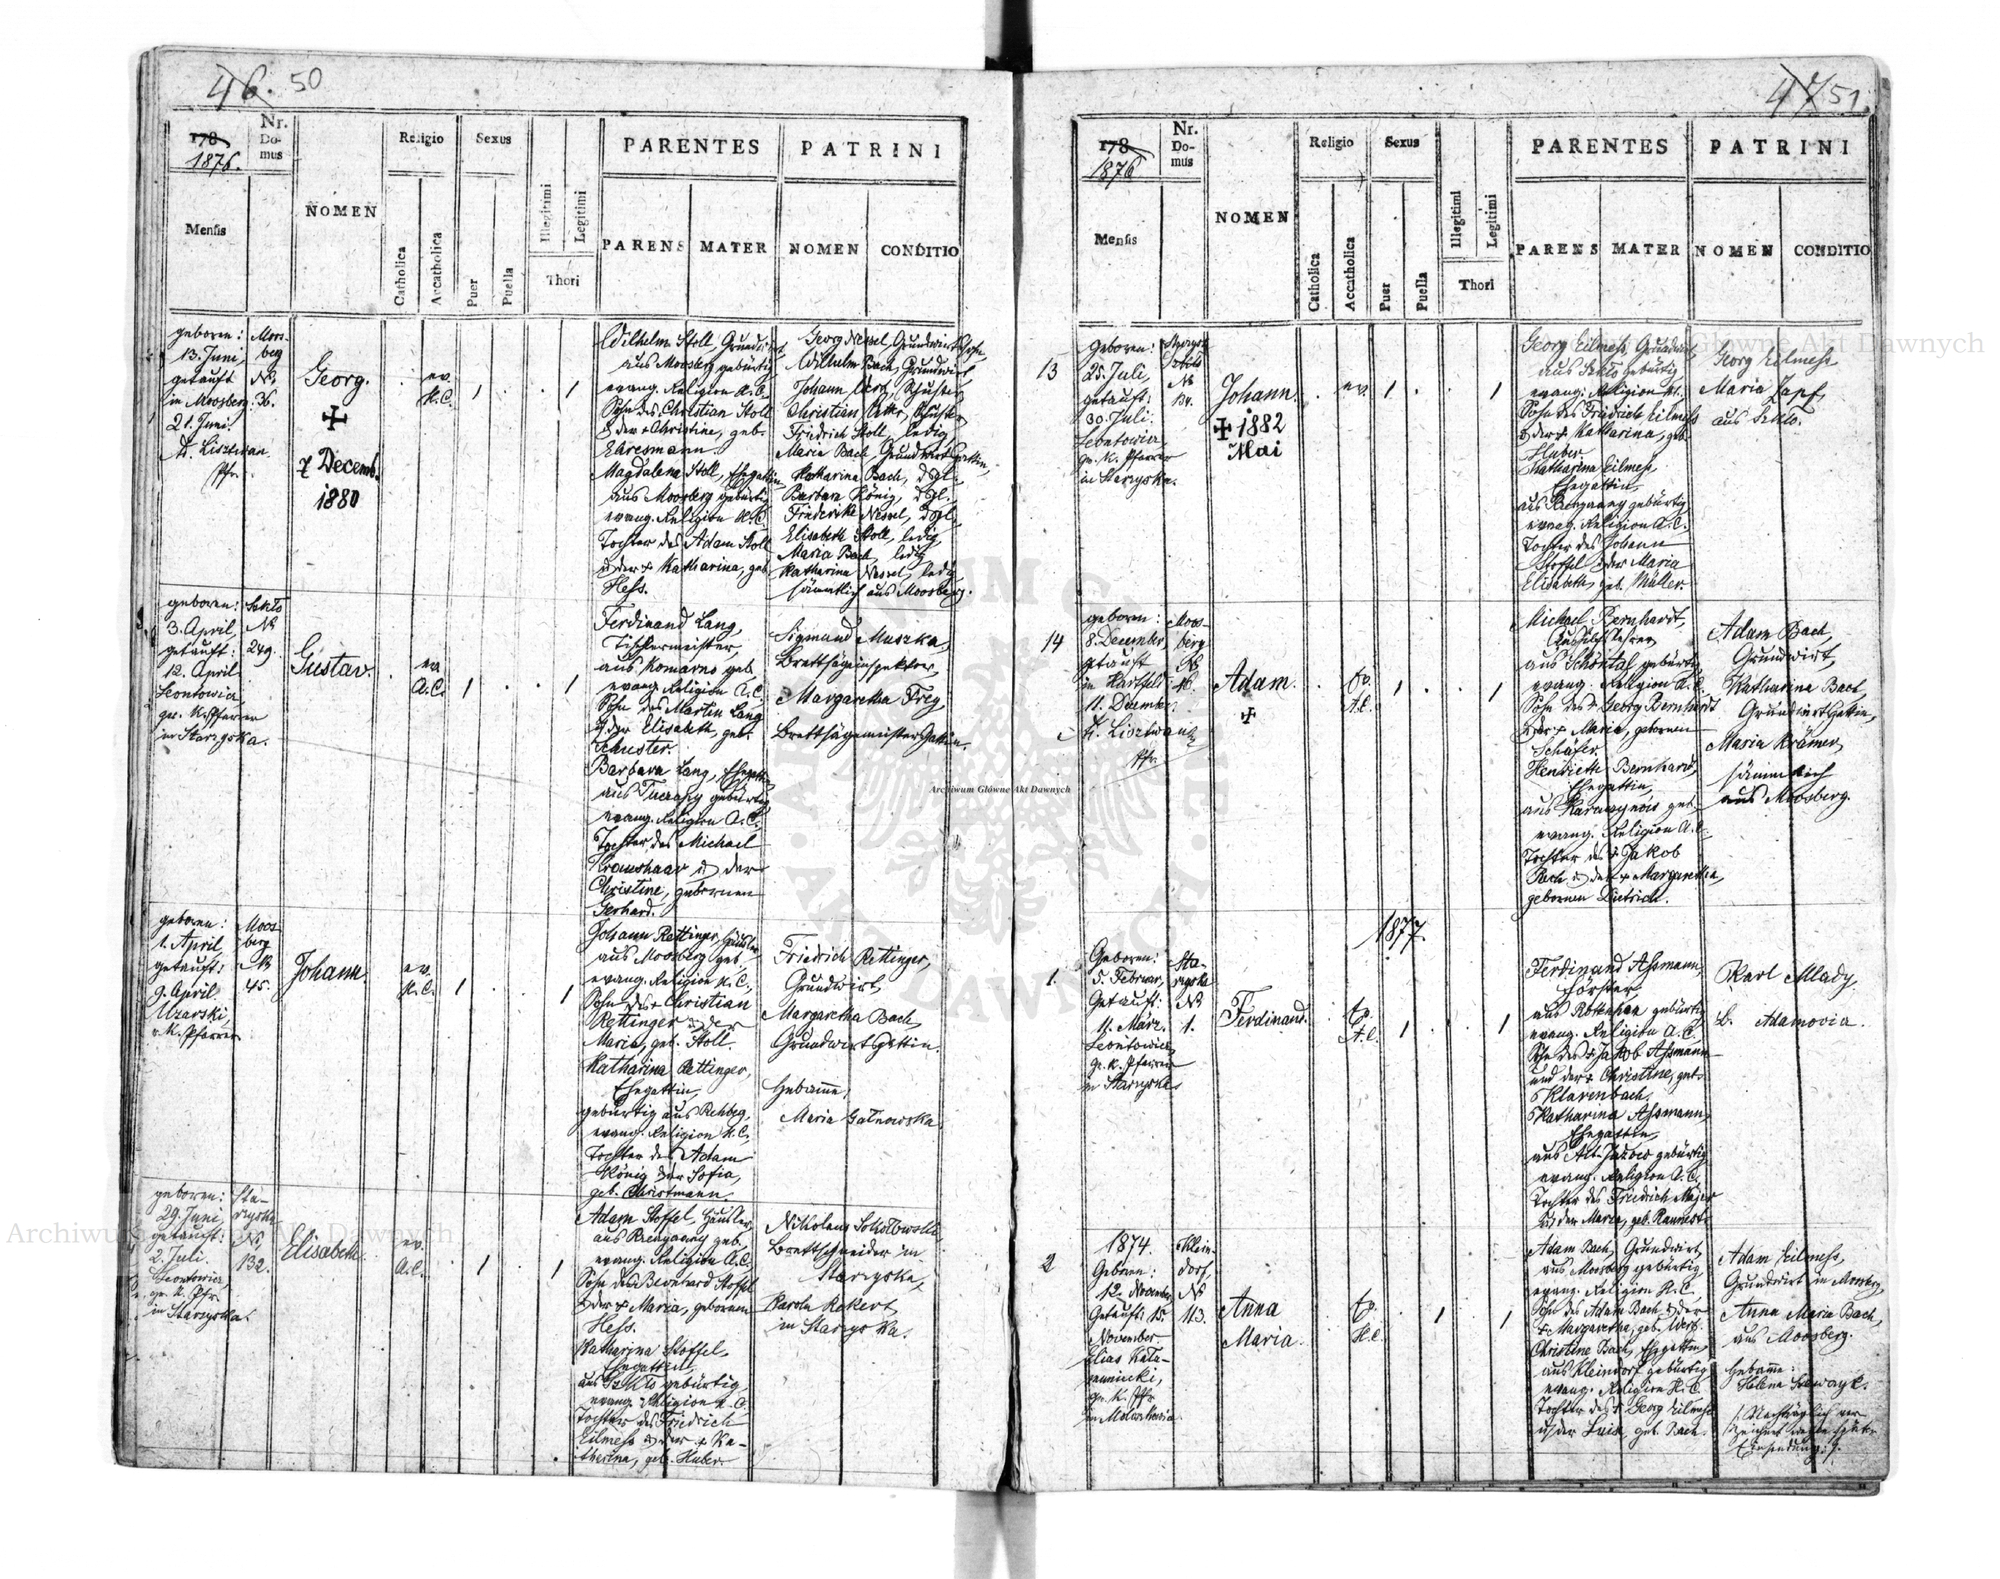 46. 50
178
1876.
Nr.
Do-
mus
Religio
Sexus
PARENTES
PATRINI
Mensis
NOMEN
Catholica
Accatholica
Puer
Puella
Illegitimi
Legitimi
Thori
PARENS
MATER
NOMEN
CONDITIO
geboren:
13. Juni,
getauft
in Moosberg
21. Juni.
Pfr.
Moos-
berg
No
36.
Georg.
✠
7 Decemb.
1880
ev.
H.C.
1
1
Wilhelm Stoll, Grundwirt,
aus Moosberg gebürtig
evang. Religion H.C.
Sohn des Christian Stoll
& der + Christine, geb.
Ehresmann
Magdalena Stoll, Ehegattin
aus Moosberg gebürtig
evang. Religion H.C.
Tochter des Adam Stoll
u. der + Katharina, geb.
Hess.
Georg Nessel, Grundwirtssohn,
Wilhelm Bach, Grundwirt,
Christian
Fridrich Stoll, ledig
Maria Bach, Grundwirtsgattin,
Katharina Bach, dtgl.,
Barbara König, dtgl.,
Friederike Nessel, dtgl.,
Elisabeth Stoll, ledig
Maria Bach, ledig
Katharina Nessel, ledig
sämmtlich aus Moosberg.
geboren:
3. April,
getauft:
12. April
Leontowicz
gr. K. Pfarrer
in Starzyska.
Szkło
No
249.
Gustav.
ev.
A.C.
1
1
Ferdinand Lang,
Tischlermeister,
aus Komarno geb.
evang. Religion A.C.
Sohn des Martin Lang
u. der Elisabeth, geb.
Schuster.
Barbara Lang, Ehegattin
gebürtig
evang. Religion A.C.
Tochter des Michael
Kraushaar u. der
Christine, gebornen
Gerhard.
Sigmund Muszka,
Brettsägeinspektor,
Margaretha Frey,
Brettsägemeisters Gattin.
geboren:
1. April
getauft:
9. April.
r. K. Pfarrer
Moos-
berg
No
45.
Johann.
ev.
H.C.
1
1
Johann Rettinger, Häusler
aus Moosberg geb.
evang. Religion H.C.,
Sohn des + Christian
Rettinger u. der
Maria, geb. Stoll.
Katharina Rettinger,
Ehegattin,
gebürtig aus Rehberg,
evang. Religion H.C.,
Tochter des Adam
König & der Sofia,
geb. Christmann.
Friedrich Rettinger,
Grundwirt,
Margaretha Bach,
Grundwirtsgattin.
Hebamme,
Maria Galnowska.
geboren:
29. Juni,
getauft:
2. Juli.
Leontowicz,
gr. K. Pfr.
in Starzyska.
Sta-
rzyska
No
132.
Elisabeth.
ev.
A.C.
1
1
Adam Stoffel, Häusler
geb.
evang. Religion A.C.,
Sohn des Bernhard Stoffel
& der + Maria, gebornen
Hess.
Katharina Stoffel,
Ehegattin
aus Szkło gebürtig,
evang. Religion H.C.
Tochter des Friedrich
Eilmess & der + Ka-
tharina, geb. Huber
Brettschneider in
Starzyska,
Karola Rekert
in Starzyska.
47 51.
178
1876
Nr.
Do-
mus
Religio
Sexus
PARENTES
PATRINI
Mensis
NOMEN
Catholica
Accatholica
Puer
Puella
Illegitimi
Legitimi
Thori
PARENS
MATER
NOMEN
CONDITIO
13
geboren:
25. Juli,
getauft:
30. Juli.
Leontowicz
gr. K. Pfarrer
in Starzyska.
No
Johann.
✠ 1882
Mai
ev.
1
1
Georg Eilmess, Grundwirt
aus Szkło gebürtig
evang. Religion H.C.
Sohn des Friedrich Eilmess
& der + Katharina, geb.
Huber.
Katharina Eilmess,
Ehegattin,
gebürtig
evang. Religion A.C.
Tochter des Johann
Stoffel & der Maria
Elisabeth, geb. Müller.
Georg Eilmess
Maria Zapf,
aus Szkło.
14
geboren:
8. December,
getauft
in Hartfeld
11. December
Pfr.
Moos-
berg
No
46.
Adam.
✠
ev.
A.C.
1
1
Michael Bernhardt,
Aushilfslehrer
aus Schönthal gebürtig,
evang. Religion A.C.
Sohn des + Georg Bernhardt
& der + Maria, gebornen
Schäfer.
Henriette Bernhardt,
Ehegattin,
geb.
evang. Religion A.C.
Tochter des + Jakob
Rech u. der + Margaretha,
gebornen Dietrich.
Adam Bach,
Grundwirt,
Katharina Bach,
Grundwirtsgattin,
Maria Krämer,
sämmtlich
aus Moosberg.
1877.
1.
Geboren:
5. Februar,
Getauft:
11. März.
Leontowicz,
gr. K. Pfarrer
in Starzyska
Sta-
rzyska
No
1.
Ferdinand.
ev.
A.C.
1
1
Ferdinand Assmann,
Förster,
aus Rottenhan gebürtig
evang. Religion A.C.
Sohn des + Jakob Assmann
und der + Christine, geb.
Klarenbach.
Katharina Assmann,
Ehegattin,
aus Alt-Jazow gebürtig
evang. Religion A.C.
Tochter des Friedrich Majer
u. der Maria, geb.
Karl Mlady,
B. Adamovia.
2
1874.
Geboren:
12. November
Getauft: 15.
November
Elias
gr. K. Pfr.
Klein-
dorf,
No
113.
Anna
Maria.
ev.
H.C.
1
1
Adam Bach, Grundwirt,
aus Moosberg gebürtig
evang. Religion H.C.,
Sohn des Adam Bach, & der
+ Margaretha, geb.
Christine Bach, Ehegattin
aus Kleindorf gebürtig
evang. Religion H.C.
Tochter des + Georg Eilmess
u. der Luise, geb. Bach.
Adam Eilmess,
Grundwirt in Moosberg,
Anna Maria Bach,
aus Moosberg.
Hebamme:
Helena
Archiwum Główne Akt Dawnych